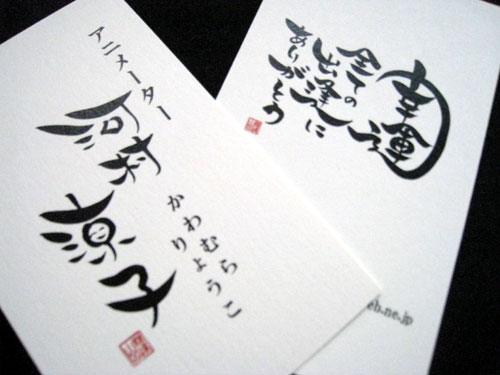 アニメーター
河村
涼子
かわむら
りょうこ
幸運
全ての
出逢いに
ありがとう
eb.ne.jp